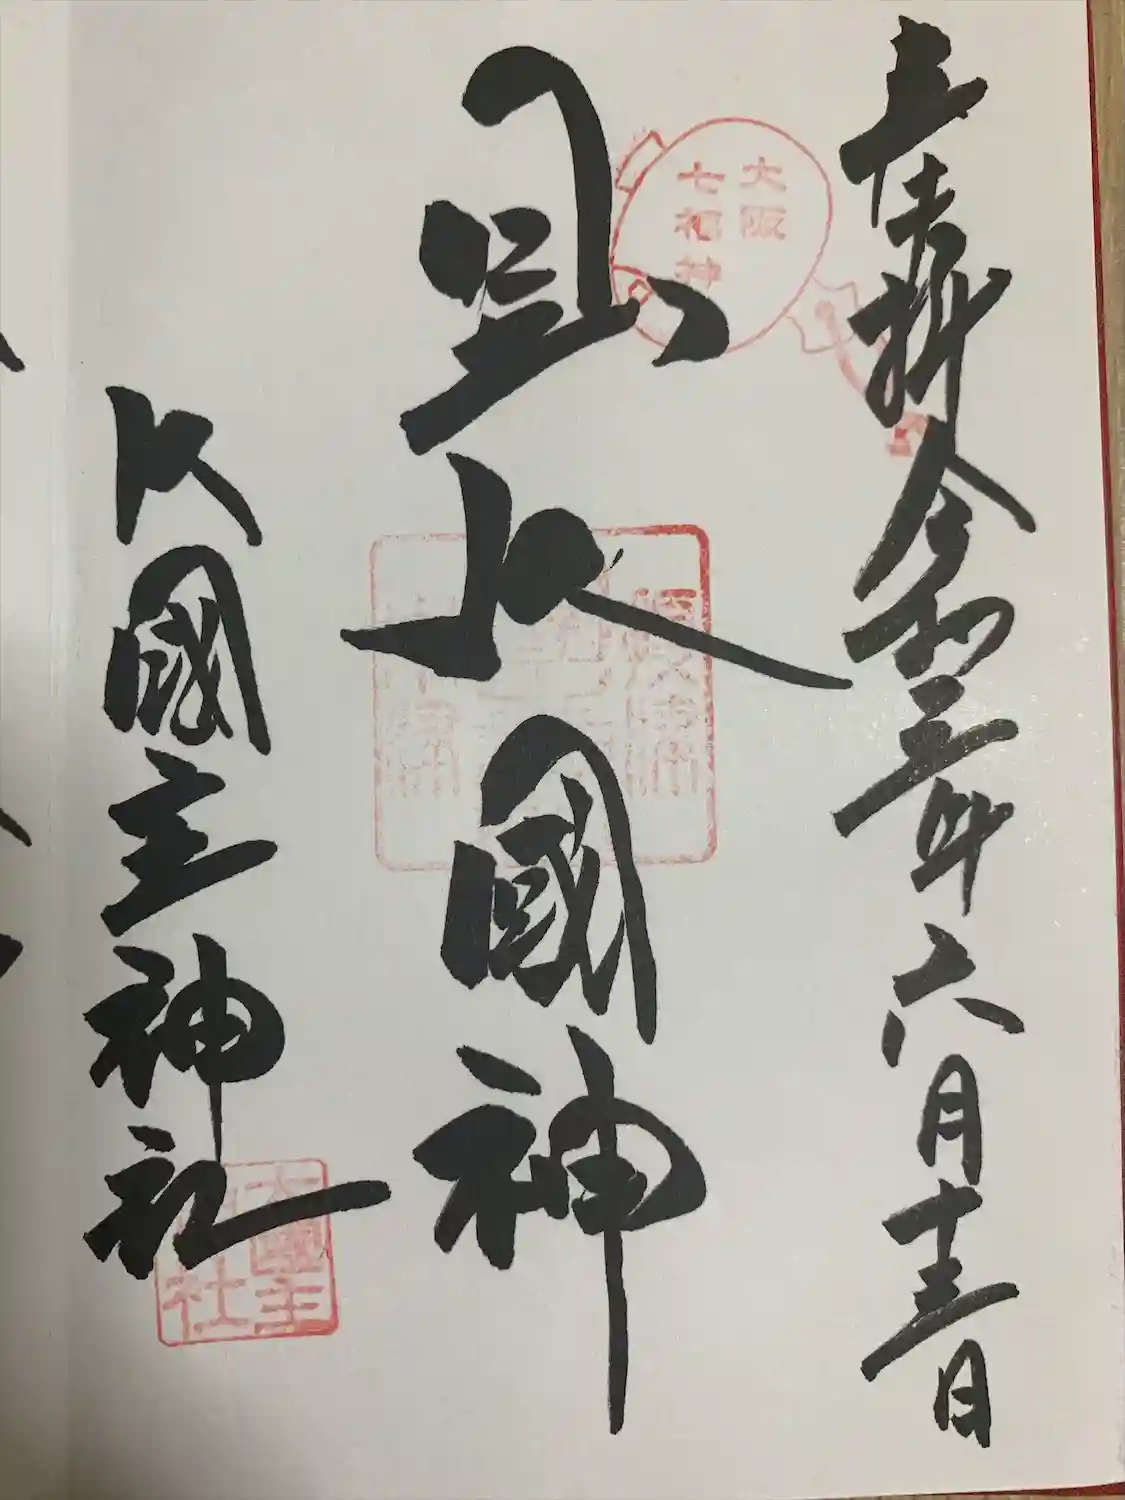 奉拝 令和三年六月十三日
大阪
七福神
大國神
大國主神社
大國主
神社